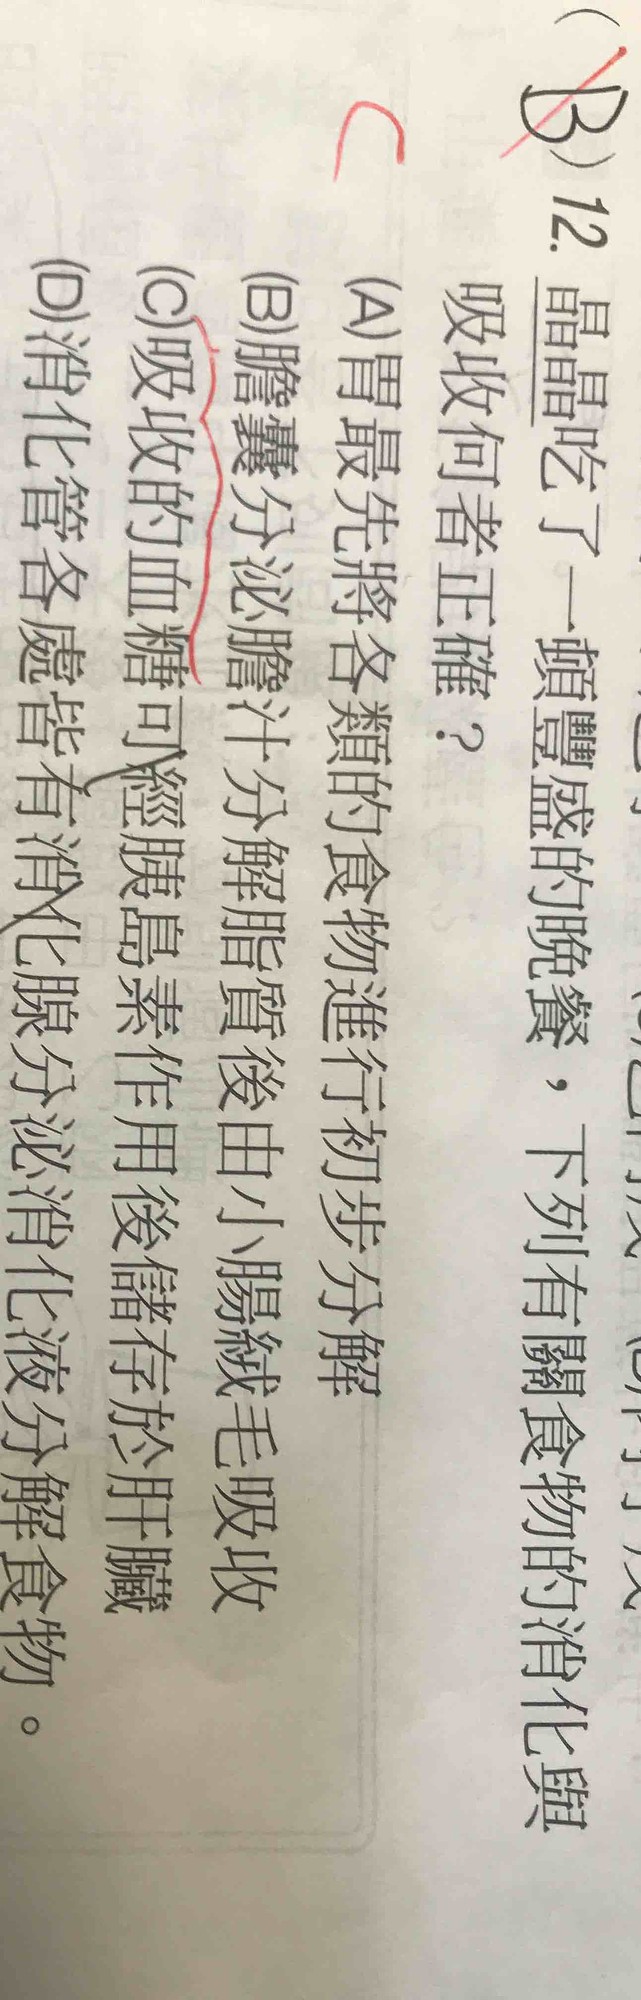 (B)12.晶晶吃了一頓豐盛的晚餐，下列有關食物的消化與
吸收何者正確？
C
(A)胃最先將各類的食物進行初步分解
(B)膽囊分泌膽汁分解脂質後由小腸絨毛吸收
(C)吸收的血糖可經胰島素作用後儲存於肝臟
(D)消化管各處皆有消化腺分泌消化液分解食物。